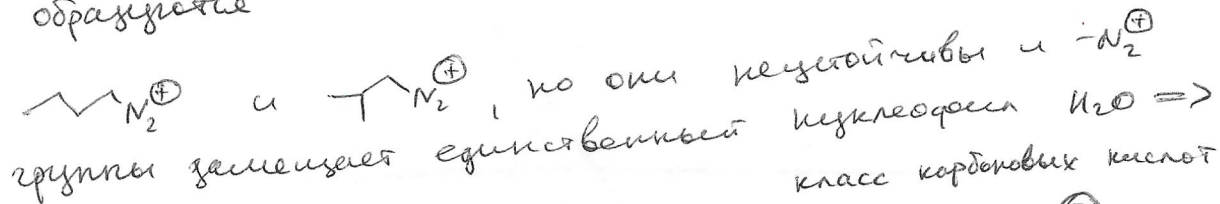 образуются
N₂⊕ и N₂⊕, но они неустойчивы и -N₂⊕
группы замещает единственный нуклеофил H₂O =>
класс карбоновых кислот